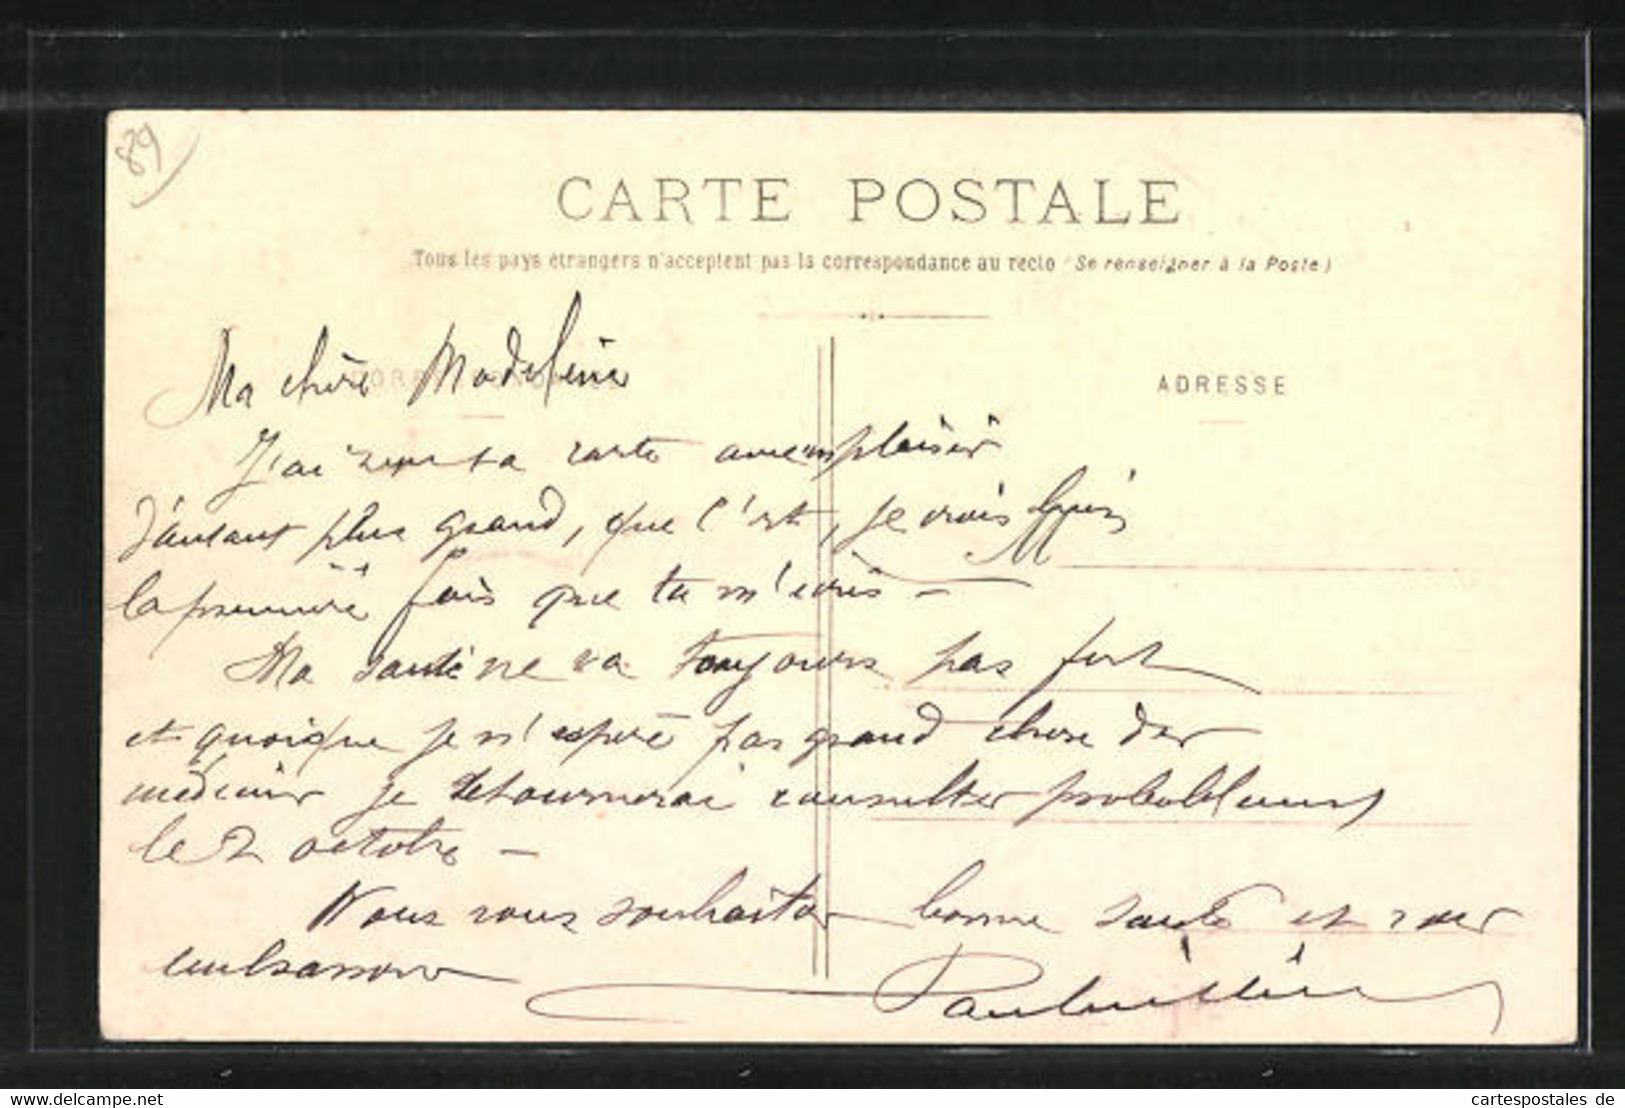 89
CARTE POSTALE
Tous les pays étrangers n'acceptent pas la correspondance au recto (Se renseigner à la Poste)
ADRESSE
Ma chère Madeleine
J'ai reçu ta carte avec plaisir
d'autant plus grand, que c'est, je crois bien
la première fois que tu m'écris -
Ma santé ne va toujours pas fort
et quoique je n'espère pas grand chose des
médecins je retournerai consulter probablement
le 2 octobre -
Nous vous souhaitons bonne santé et vous
embrassons
www.oldthing.de
cartespostales de